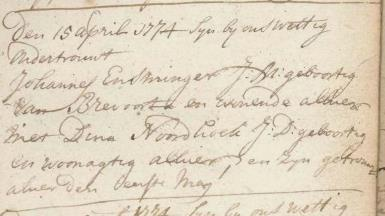 Den 15 april 1774 Syn by ons wettig
Ondertrouwt
Johannes Ensminger J: M: geboortig
van Brevoort en wonende alhier
met Dina Noordhoek J: D: geboortig
en woonagtig alhier, en zyn getrouwt
alhier den eerste Mey
1774 Syn by ons wettig